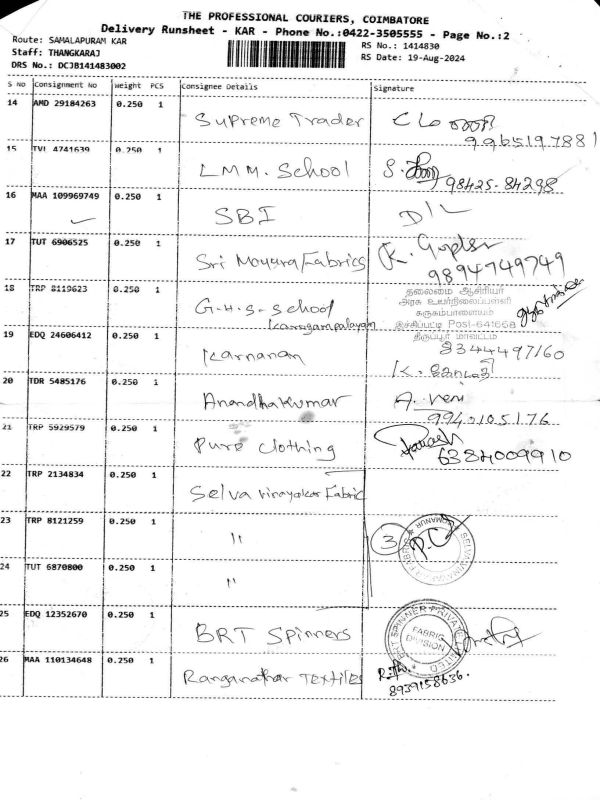 THE PROFESSIONAL COURIERS, COIMBATORE
Delivery Runsheet - KAR - Phone No.:0422-3505555 - Page No.:2
Route: SAMALAPURAM KAR
Staff: THANGKARAJ
DRS No.: DCJB141483002
RS No.: 1414830
RS Date: 19-Aug-2024
S No Consignment No Weight PCS Consignee Details Signature
14 AMD 29184263 0.250 1 Supreme Trader
9965197881
15 TVL 4741639 0.250 1 LMM. School
98425-84298
16 MAA 109969749 0.250 1 SBI D/L
17 TUT 6906525 0.250 1 Sri Mayura Fabrics
9894749749
18 TRP 8119623 0.250 1 G.H.S-School
Karugampalayam
தலைமை ஆசிரியர்
அரசு உயர்நிலைப்பள்ளி
கருகம்பாளையம்
இச்சிப்பட்டி Post-641668
திருப்பூர் மாவட்டம்
19 EDQ 24606412 0.250 1 Karnanan
9344497160
20 TDR 5485176 0.250 1 Anandhakumar A. Veni
9940105176
21 TRP 5929579 0.250 1 Pure Clothing
6384009910
22 TRP 2134834 0.250 1 Selva Vinayakar Fabric
23 TRP 8121259 0.250 1 "
3
24 TUT 6870800 0.250 1 "
25 EDQ 12352670 0.250 1 BRT Spinners
BRT SPINNER PRIVATE LIMITED
FABRIC
DIVISION
26 MAA 110134648 0.250 1 Ranganathar Textiles
8939158636.